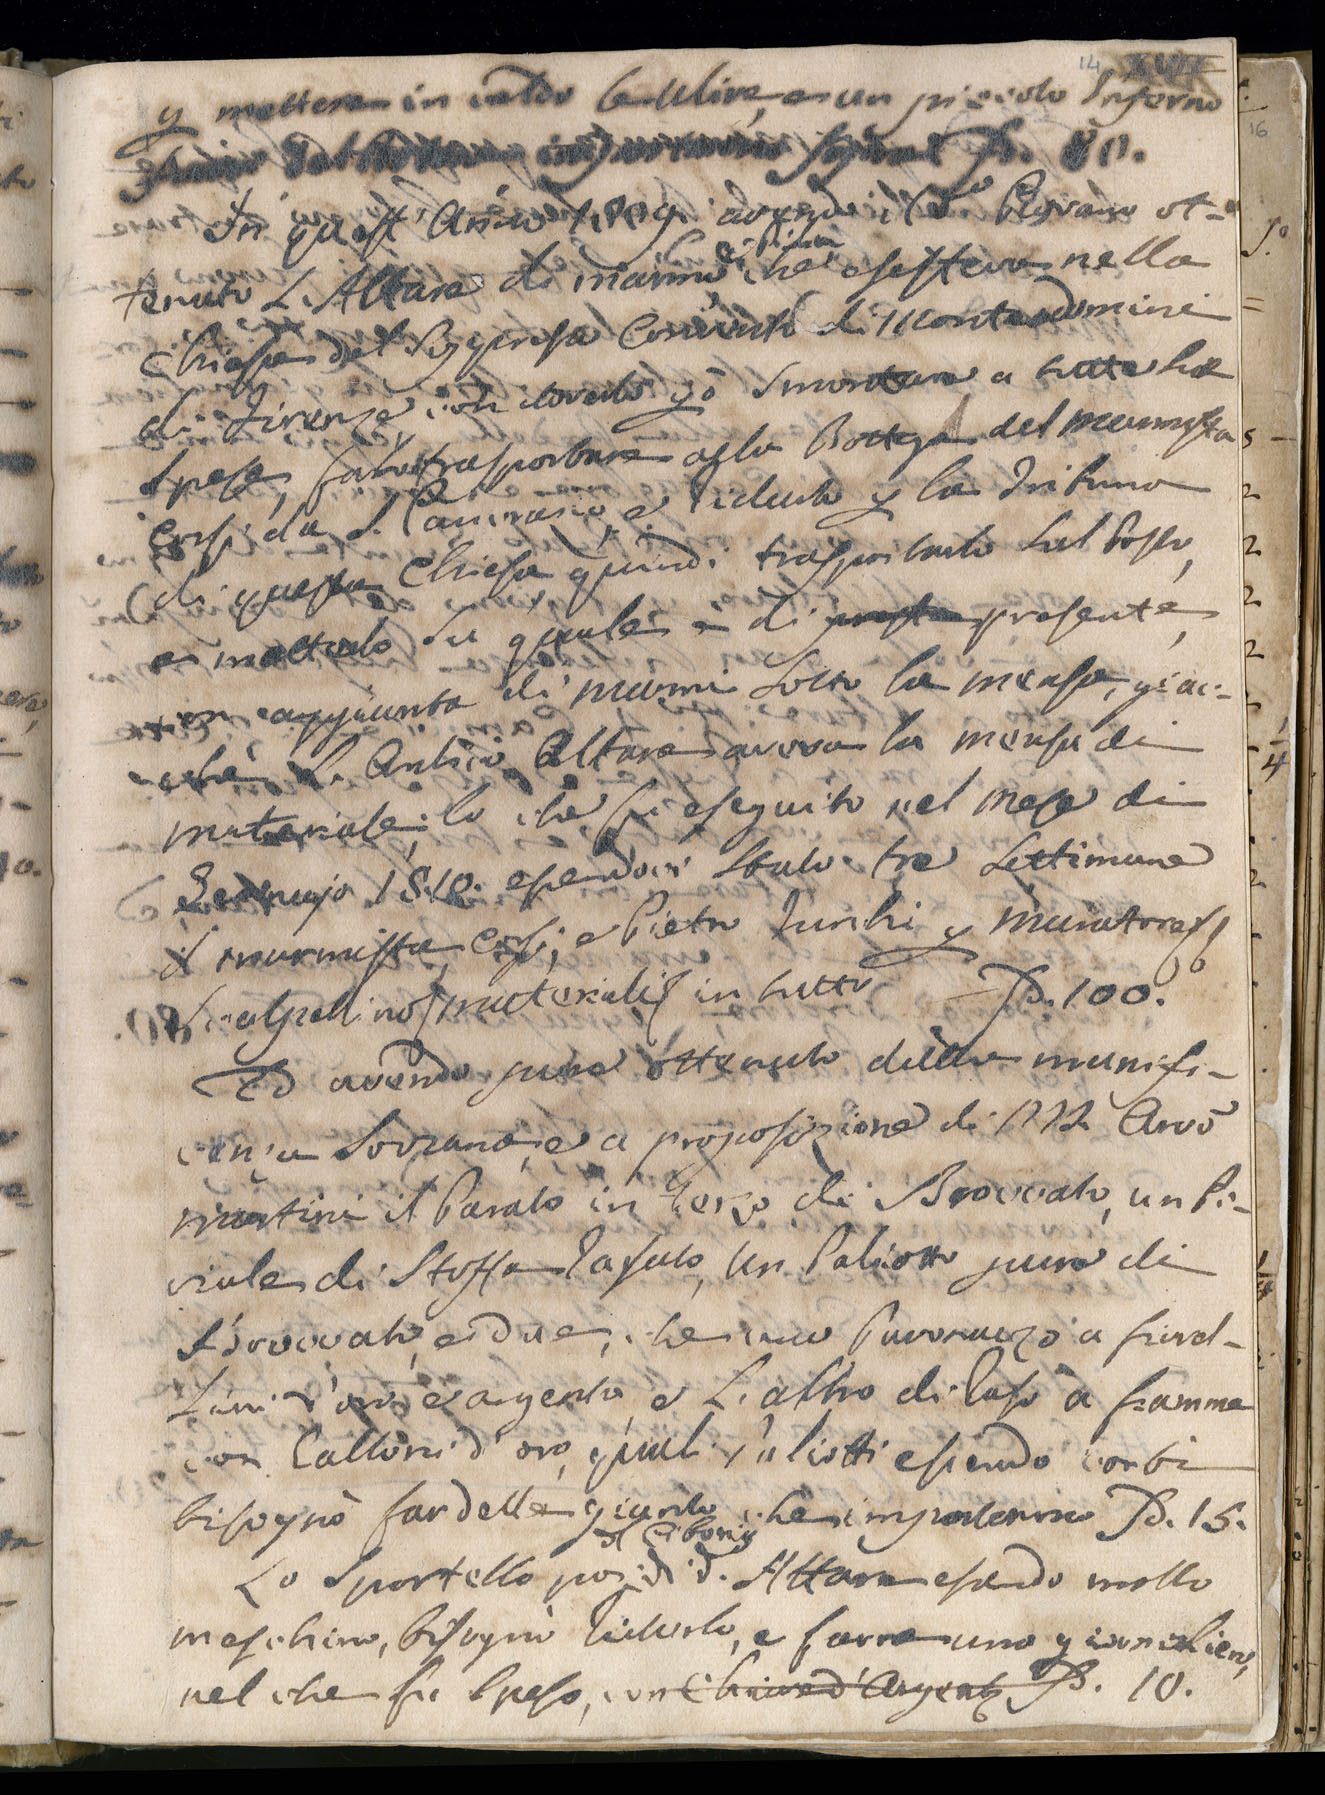 14 XVII
p mettere in caldo le Ulive, e un piccolo Inferno
P. 80.
In quest'Anno 1809. avendo il Pievano ot-
tenuto L'Altare di marmo di Pietra che esisteva nella
Chiesa del Soppresso Convento di Montedomini
di Firenze, con doverlo però smontare a tutte sue
spese, farlo trasportare alla Bottega del marmista
Corsi da S. Pancrazio, e ridurlo p la Tribuna
di questa Chiesa quindi trasportarlo sul Posto,
e metterlo su quale è di presente,
con aggiunta di marmi sotto la mensa, giac-
chè L'Antico Altare aveva la mensa di
materiale, lo che fu eseguito nel mese di
Gennajo 1810. essendoci stato tre settimane
il marmista Corsi, e Pietro Turchi p muratore,
scalpellino, materiali in tutto P. 100.
Ed avendo pure ottenuto dalla munifi-
cenza Sovrana, e a proposizione di M. Arciv.o
Martini il Parato in Terzo di Broccato, un Pi-
viale di Stoffa rasato, Un Paliotto pure di
Broccato, e due, che uno Pavonazzo a fiorel-
lini d'oro e argento, e L'altro di raso a fiamme
con Galloni d'oro, quali Paliotti essendo corti
bisognò far delle giunte che importarono P. 15.
Lo Sportello poi di d. Altare essendo molto
del Ciborio
meschino, bisognò ridurlo, e farne uno
nel che fu speso, con Chiave d'Argento P. 10.